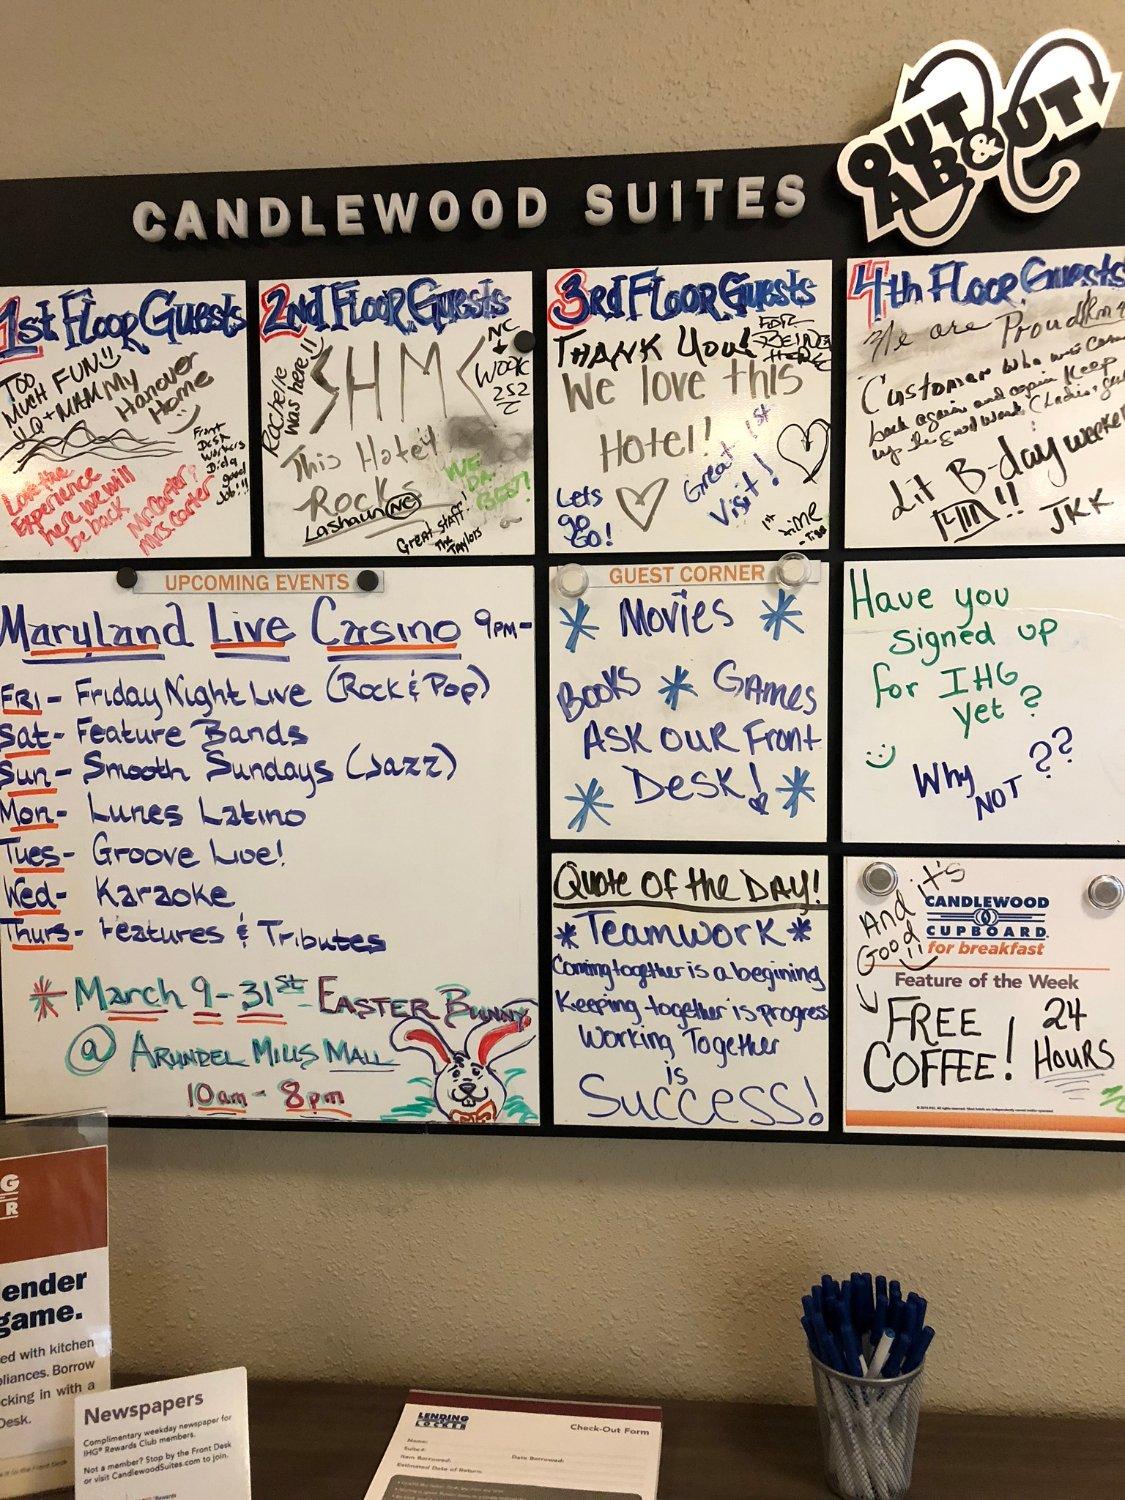 OUT & ABOUT
CANDLEWOOD SUITES
1st Floor Guests
Too
Much FUN!!
MAMMy
Hanover
Home
Front
Desk
Workers
Did a
good
Job!!!
Love the
Experience
here we will
be back
Mr Carter?
Mrs carter
2nd Floor Guests
Rache're
was here
SHMC
NC
WOOK
252
This Hotel
Rocks
WE
DA
BEST!
Lashaun NC
Great Staff!
The
Taylors
3rd Floor Guests
THANK You!
FOR
BEING
HERE
We love this
Hotel!
Great 1st
Visit!
Lets
go
GO!
1st
time
4th Floor Guests
We are Proud
Customer who was
back again and again Keep
up the Good Work
Lit B-day weeken
JKK
UPCOMING EVENTS
Maryland Live Casino 9pm-
Fri - Friday Night Live (Rock & Pop)
Sat - Feature Bands
Sun - Smooth Sundays (Jazz)
Mon - Lunes Latino
Tues - Groove Live!
Wed - Karaoke
Thurs - Features & Tributes
* March 9 - 31st EASTER BUNNY
@ ARUNDEL MILLS MALL
10am - 8pm
GUEST CORNER
* Movies *
Books * Games
ASK OUR Front
* Desk! *
Have you
signed up
for IHG
yet?
Why
NOT ??
Quote of the DAY!
* Teamwork *
Coming together is a begining
Keeping together is progress
Working Together
is
Success!
And it's
Good!!
CANDLEWOOD
CUPBOARD
for breakfast
Feature of the Week
FREE
COFFEE!
24
HOURS
G
R
ender
game.
ed with kitchen
pliances. Borrow
cking in with a
Desk.
Newspapers
Complimentary weekday newspaper for
IHG® Rewards Club members.
Not a member? Stop by the Front Desk
or visit CandlewoodSuites.com to join.
LENDING
LOCKER
Check-Out Form
Name:
Suite#:
Item Borrowed:
Date Borrowed:
Estimated Date of Return: